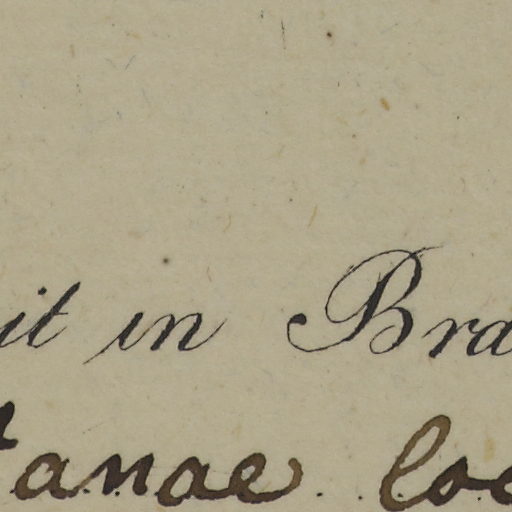 it in Bra
anae loc